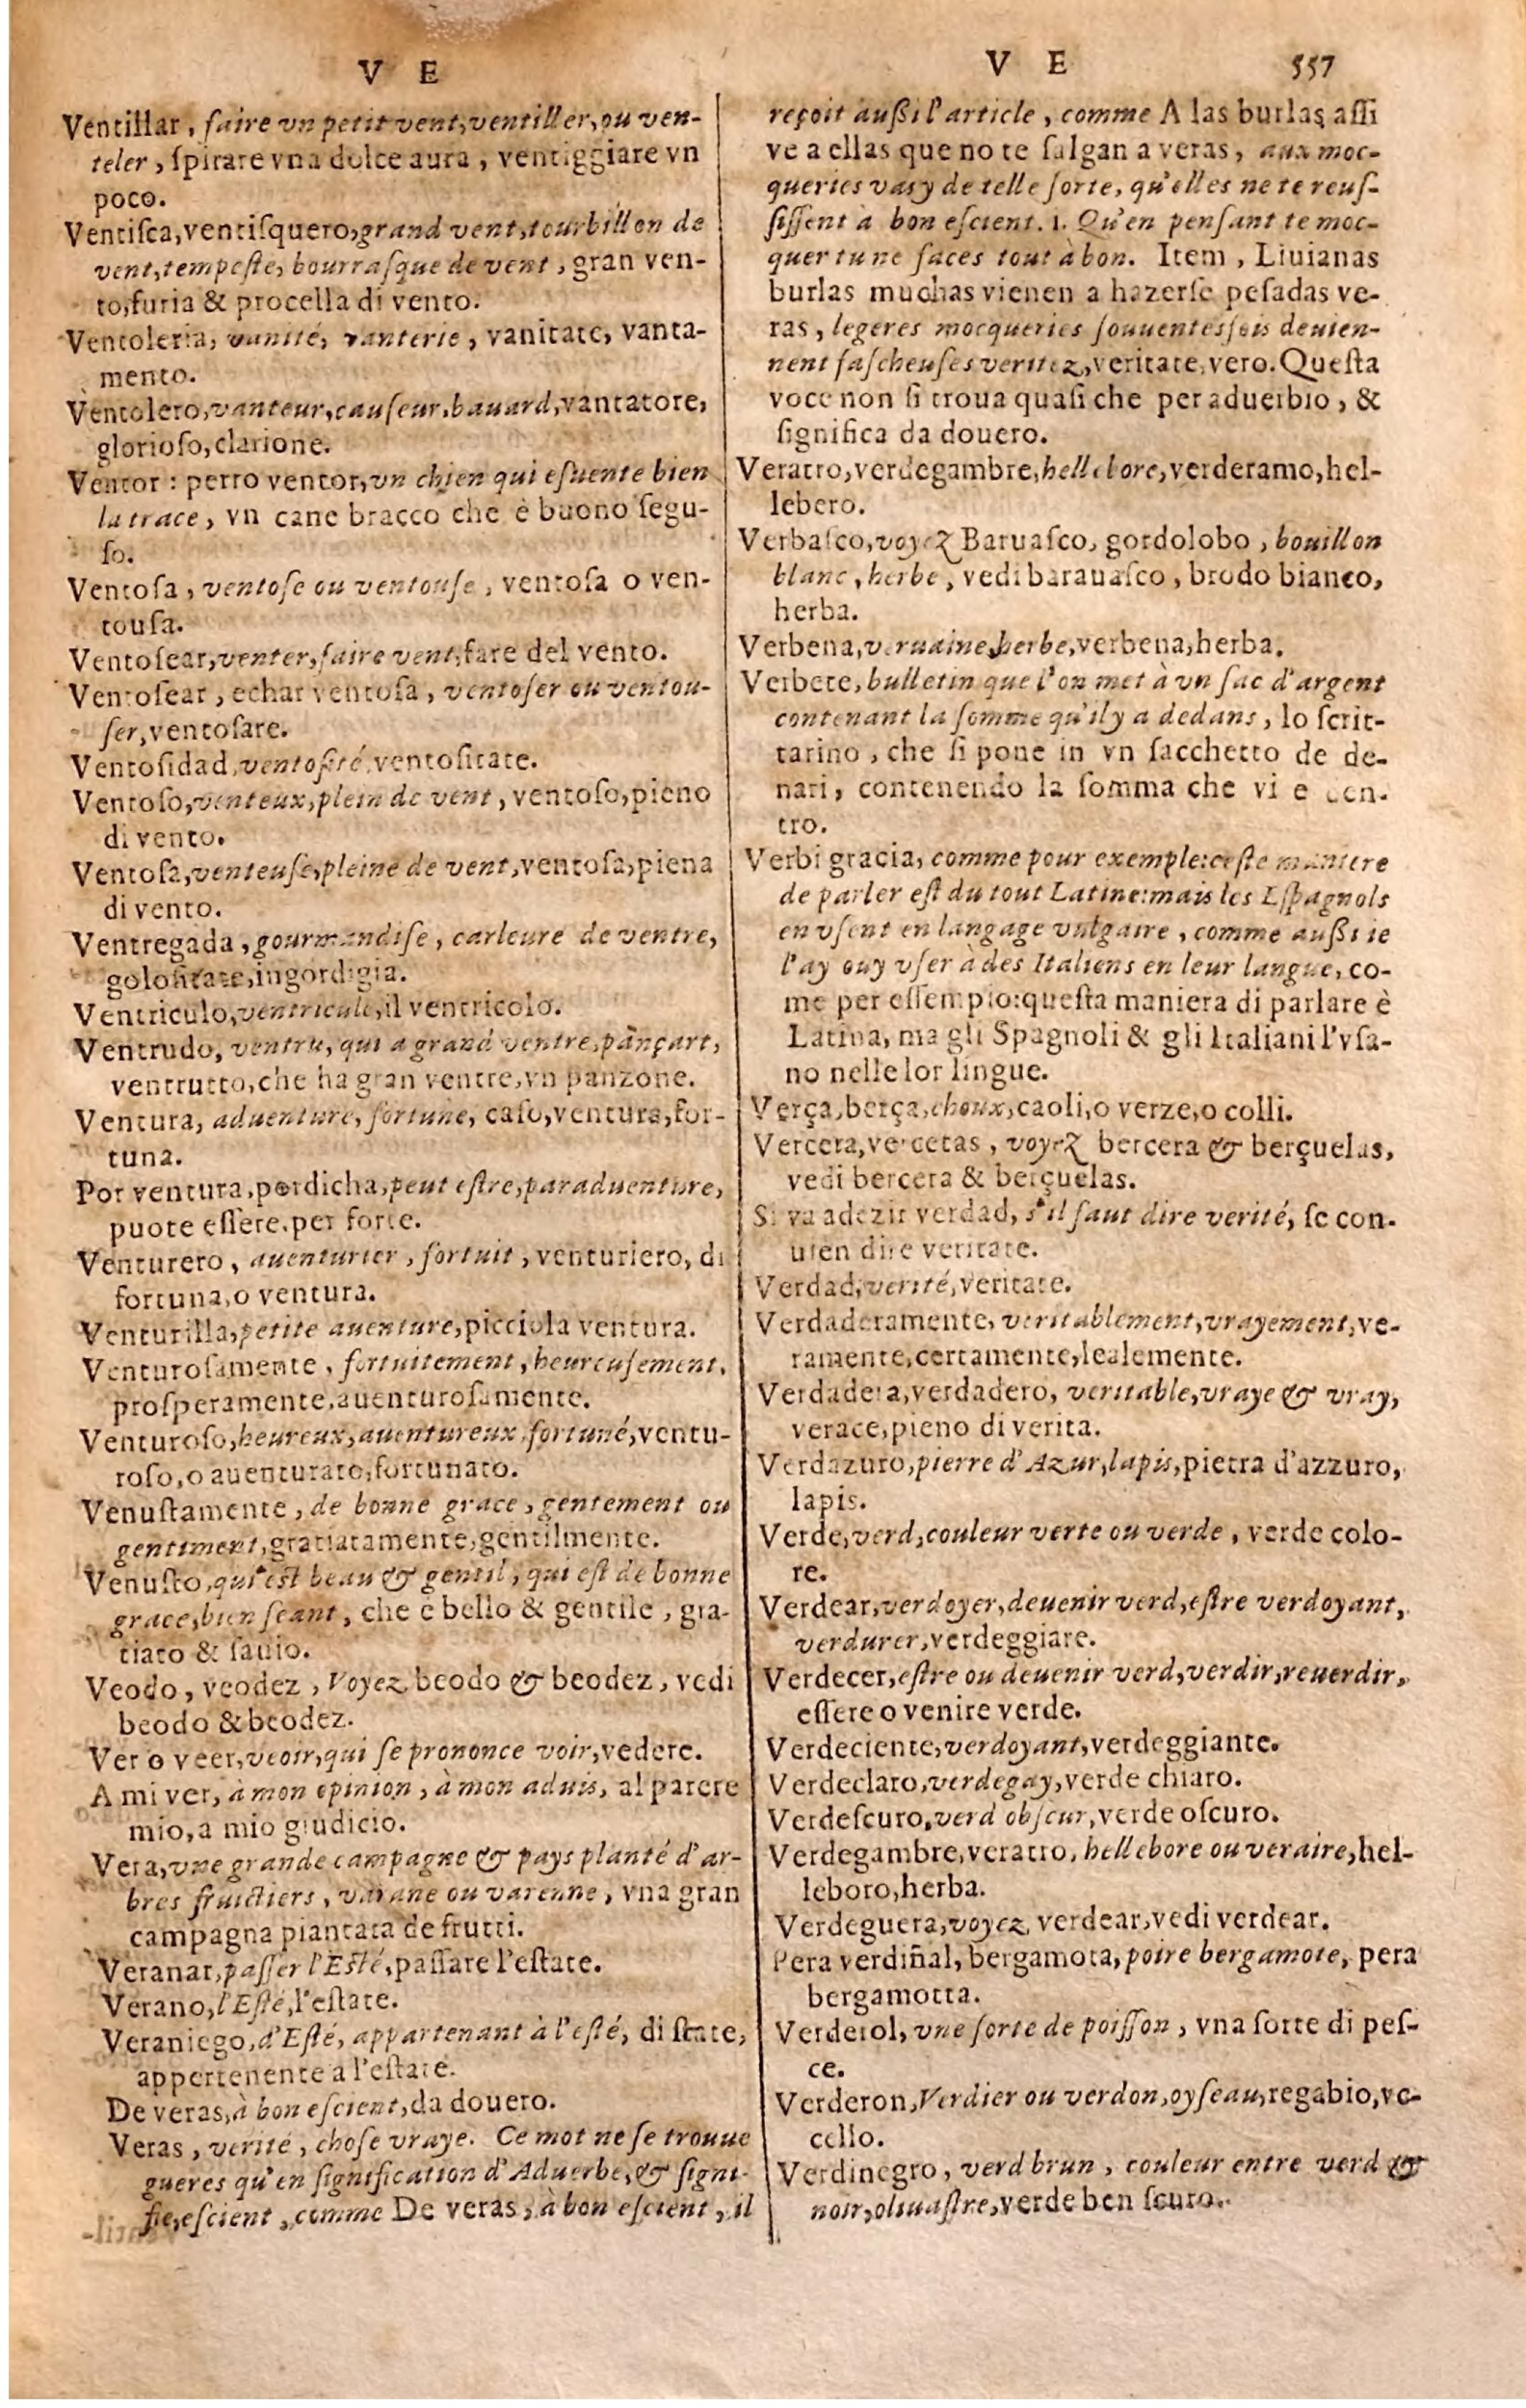 V E
Ventillar, faire vn petit vent, ventiller, ou ven-
teler, ſpirare vna dolce aura, ventiggiare vn
poco.
Ventiſca, ventiſquero, grand vent, tourbillon de
vent, tempeſte, bourraſque de vent, gran ven-
to, furia & procella di vento.
Ventoleria, vanité, vanterie, vanitate, vanta-
mento.
Ventolero, vanteur, cauſeur, bauard, vantatore,
glorioſo, clarione.
Ventor: perro ventor, vn chien qui eſuente bien
la trace, vn cane bracco che è buono ſegu-
ſo.
Ventoſa, ventoſe ou ventouſe, ventoſa o ven-
touſa.
Ventoſear, venter, faire vent, fare del vento.
Ventoſear, echar ventoſa, ventoſer ou ventou-
ſer, ventoſare.
Ventoſidad, ventoſité, ventoſitate.
Ventoſo, venteux, plein de vent, ventoſo, pieno
di vento.
Ventoſa, venteuſe, pleine de vent, ventoſa, piena
di vento.
Ventregada, gourmandiſe, carleure de ventre,
goloſitate, ingordigia.
Ventriculo, ventricule, il ventricolo.
Ventrudo, ventru, qui a grand ventre, pançart,
ventrutto, che ha gran ventre, vn panzone.
Ventura, aduenture, fortune, caſo, ventura, for-
tuna.
Por ventura, pordicha, peut eſtre, par aduenture,
puote eſſere, per forte.
Venturero, auenturier, fortuit, venturiero, di
fortuna, o ventura.
Venturilla, petite auenture, picciola ventura.
Venturoſamente, fortuitement, heureuſement,
proſperamente, auenturoſamente.
Venturoſo, heureux, auentureux, fortuné, ventu-
roſo, o auenturato, fortunato.
Venuſtamente, de bonne grace, gentement ou
gentiment, gratiatamente, gentilmente.
Venuſto, qui eſt beau & gentil, qui eſt de bonne
grace, bien ſeant, che è bello & gentile, gra-
tiato & ſauio.
Veodo, veodez, Voyez beodo & beodez, vedi
beodo & beodez.
Ver o veer, veoir, qui ſe prononce voir, vedere.
A mi ver, à mon opinion, à mon aduis, al parere
mio, a mio giudicio.
Vera, vne grande campagne & pays planté d'ar-
bres fruictiers, varane ou varenne, vna gran
campagna piantata de frutti.
Veranar, paſſer l'Eſté, paſſare l'eſtate.
Verano, l'Eſté, l'eſtate.
Veraniego, d'Eſté, appartenant à l'eſté, di ſtate,
appertenente a l'eſtate.
De veras, à bon eſcient, da douero.
Veras, verité, choſe vraye. Ce mot ne ſe trouue
gueres qu'en ſignification d'Aduerbe, & ſigni-
fie, eſcient, comme De veras, à bon eſcient, il
V E 557
reçoit auſſi l'article, comme A las burlas aſſi
ve a ellas que no te ſalgan a veras, aux moc-
queries vas y de telle ſorte, qu'elles ne te reuſ-
ſiſſent à bon eſcient. i. Qu'en penſant te moc-
quer tu ne faces tout à bon. Item, Liuianas
burlas muchas vienen a hazerſe peſadas ve-
ras, legeres mocqueries ſouuentesfois deuien-
nent faſcheuſes veritez, veritate, vero. Queſta
voce non ſi troua quaſi che per aduerbio, &
ſignifica da douero.
Veratro, verdegambre, hellebore, verderamo, hel-
lebero.
Verbaſco, voyez Baruaſco, gordolobo, bouillon
blanc, herbe, vedi barauaſco, brodo bianco,
herba.
Verbena, veruaine, herbe, verbena, herba.
Verbete, bulletin que l'on met à vn ſac d'argent
contenant la ſomme qu'il y a dedans, lo ſcrit-
tarino, che ſi pone in vn ſacchetto de de-
nari, contenendo la ſomma che vi e den-
tro.
Verbi gracia, comme pour exemple: ceſte maniere
de parler eſt du tout Latine: mais les Eſpagnols
en vſent en langage vulgaire, comme auſſi ie
l'ay ouy vſer à des Italiens en leur langue, co-
me per eſſempio: queſta maniera di parlare è
Latina, ma gli Spagnoli & gli Italiani l'vſa-
no nelle lor lingue.
Verça, berça, choux, caoli, o verze, o colli.
Vercera, vercetas, voyez bercera & berçuelas,
vedi bercera & berçuelas.
Si va a dezir verdad, s'il faut dire verité, ſe con-
uien dire veritate.
Verdad, verité, veritate.
Verdaderamente, veritablement, vrayement, ve-
ramente, certamente, lealemente.
Verdadera, verdadero, veritable, vraye & vray,
verace, pieno di verita.
Verdazuro, pierre d'Azur, lapis, pietra d'azzuro,
lapis.
Verde, verd, couleur verte ou verde, verde colo-
re.
Verdear, verdoyer, deuenir verd, eſtre verdoyant,
verdurer, verdeggiare.
Verdecer, eſtre ou deuenir verd, verdir, reuerdir,
eſſere o venire verde.
Verdeciente, verdoyant, verdeggiante.
Verdeclaro, verdegay, verde chiaro.
Verdeſcuro, verd obſcur, verde oſcuro.
Verdegambre, veratro, hellebore ou veraire, hel-
leboro, herba.
Verdeguera, voyez verdear, vedi verdear.
Pera verdiñal, bergamota, poire bergamote, pera
bergamotta.
Verderol, vne ſorte de poiſſon, vna ſorte di peſ-
ce.
Verderon, Verdier ou verdon, oyſeau, regabio, vc-
cello.
Verdinegro, verd brun, couleur entre verd &
noir, oliuaſtre, verde ben ſcuro.